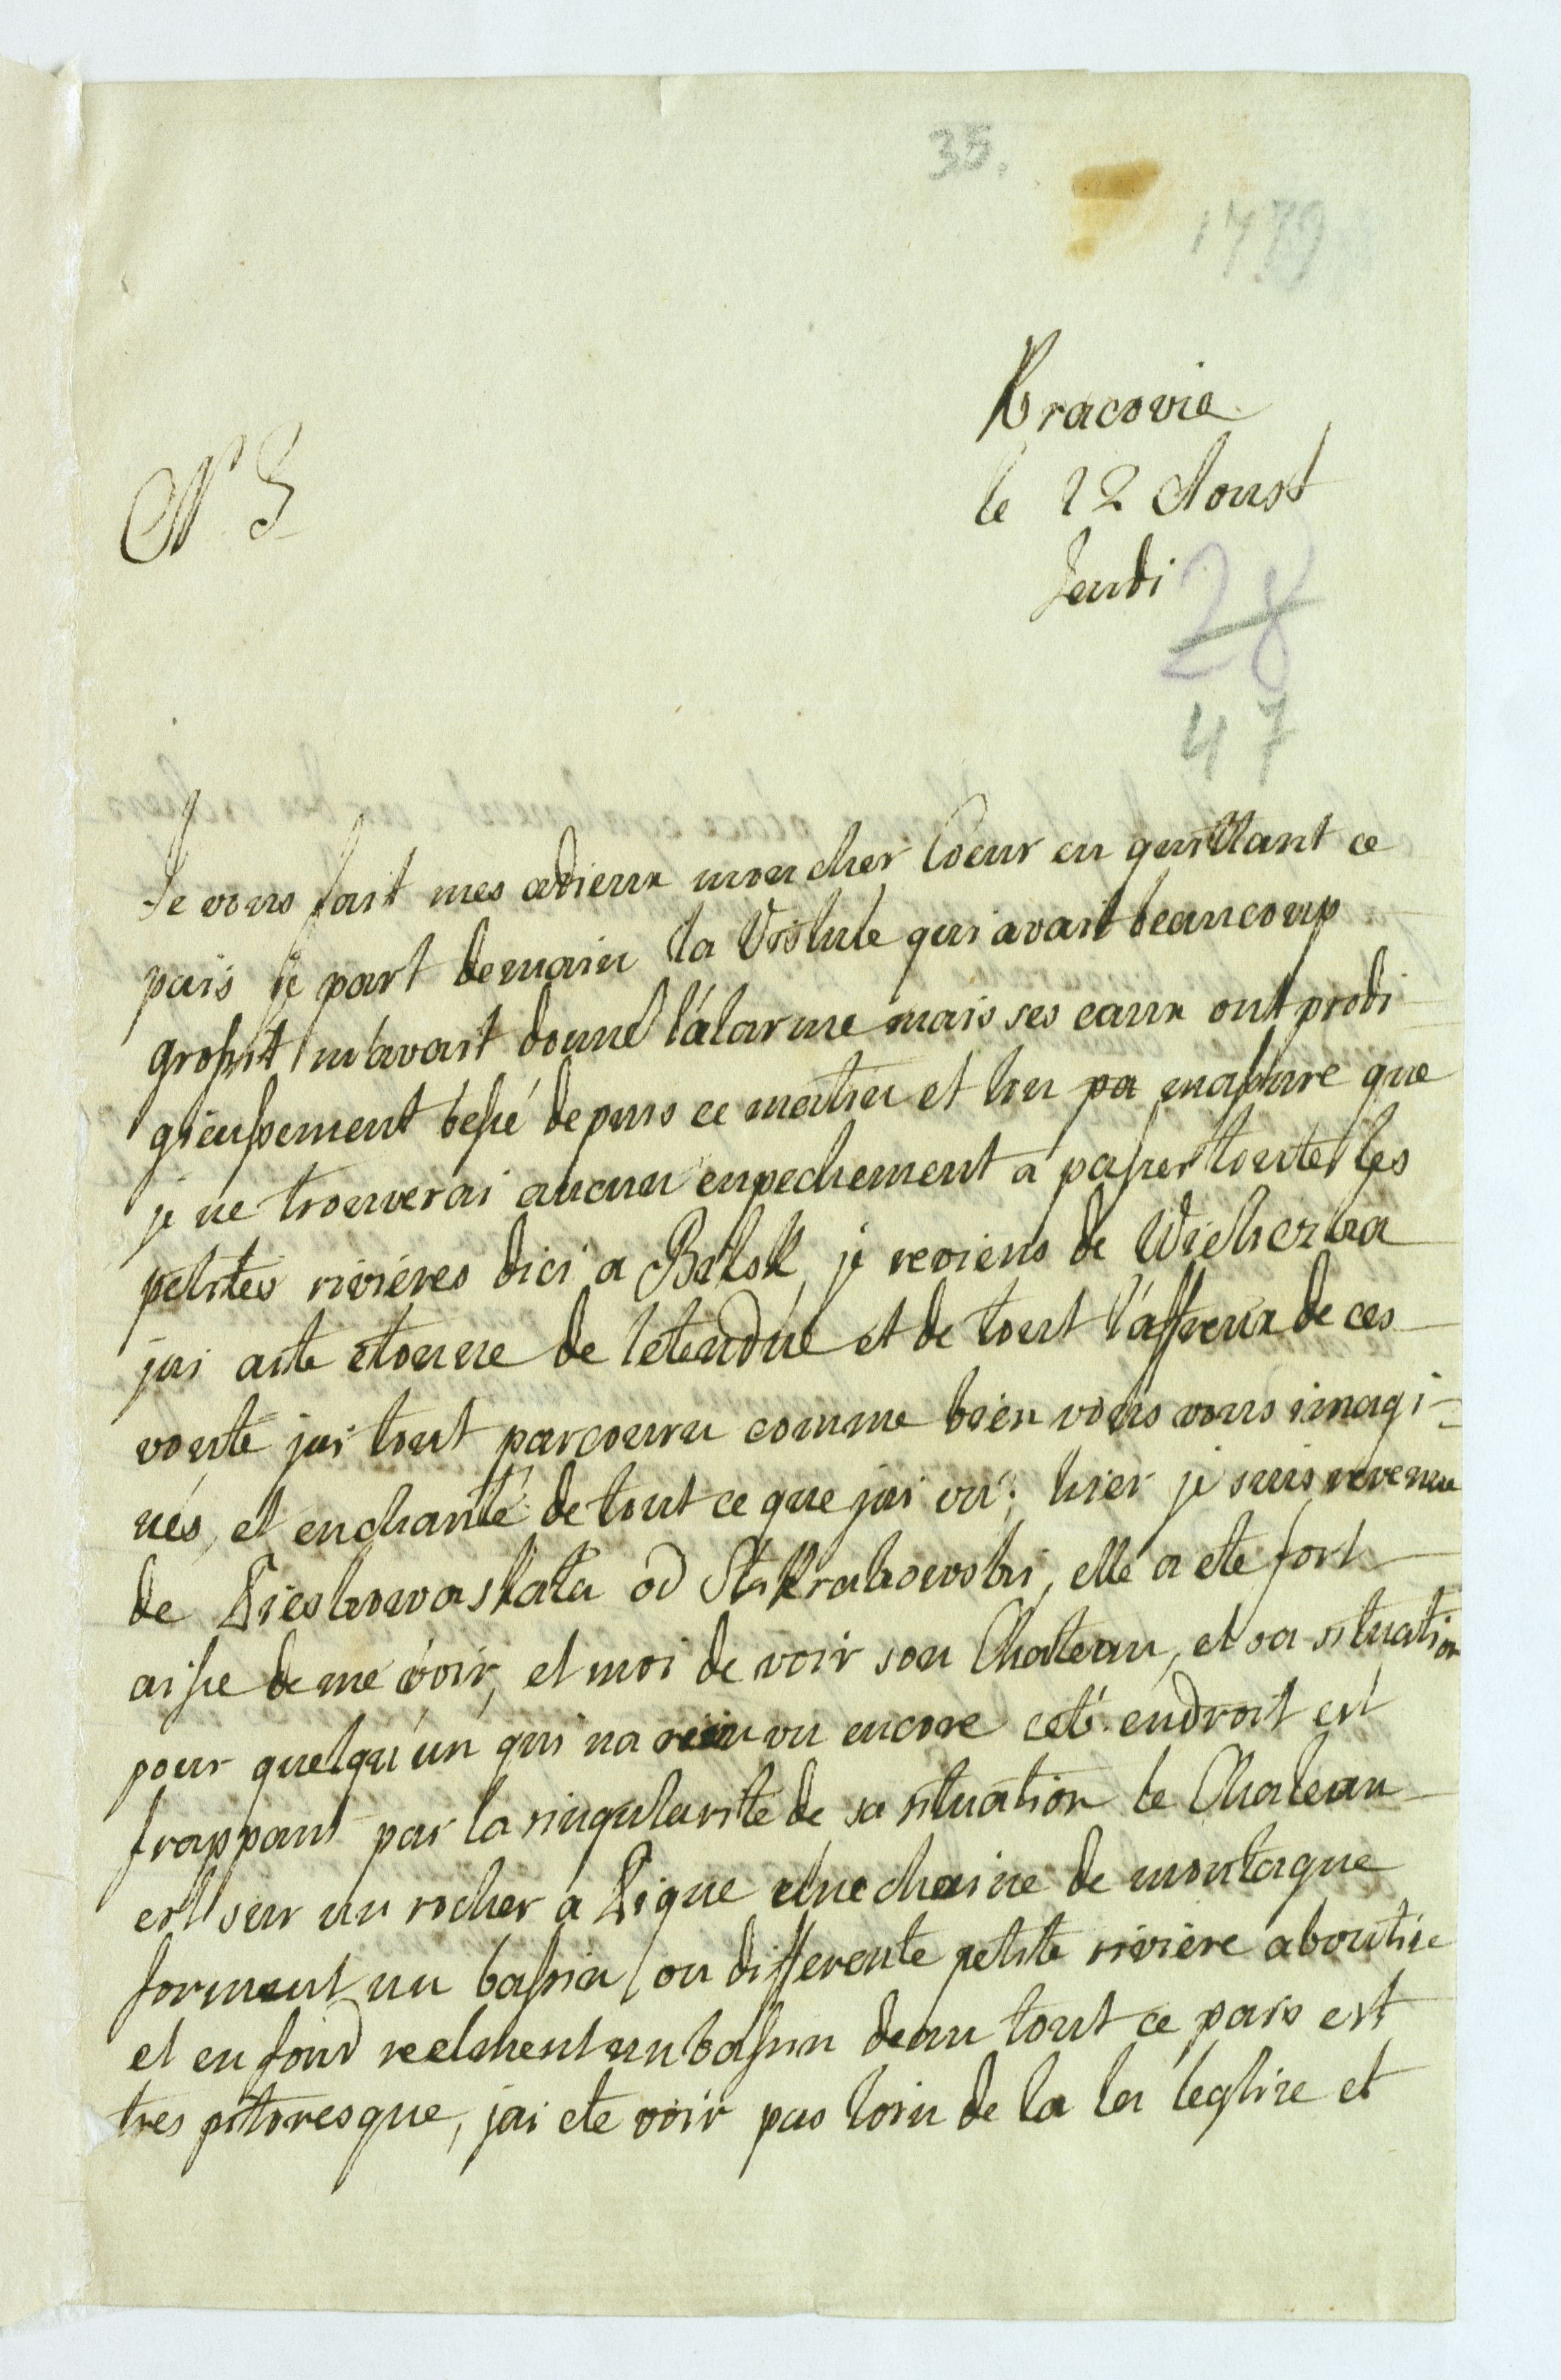 35.
1779
Kracovie
le 12 Aoust
Jeudi
N° 5
28
47
Je vous fait mes adieux mon cher Coeur en quittant ce
pais je part demain la Vistule qui avait beaucoup
grossit m'avait donné l'alarme mais ses eaux ont prodi
gieussement bessé depuis ce mentin et l'on pa massure que
je ne trouverai aucun enpechement a passer toute les
petites riviéres dici a Bilsk je reviens de Wieliczka
jai aite etonne de letendue et de tout l'affreux de ces
voute jai tout parcouru comme bien vous vous imagi-
nés, et enchanté de tout ce que jai vu; hier je suis revenue
de Pieskowaskała od Sta Krakowski, elle a ete fort
aisse de me voir, et moi de voir son Chateau, et sa situation
pour quelqu'un qui na rien vu encore cet endroit est
frappant par la singularite de sa situation le Chateau
est sur un rocher a Pique une chaine de montague
forment un bassin ou differente petite riviere aboutise
et en fond reelment un bassin deau tout ce pais est
tres pitoresque, jai ete voir pas loin de la la leglise et